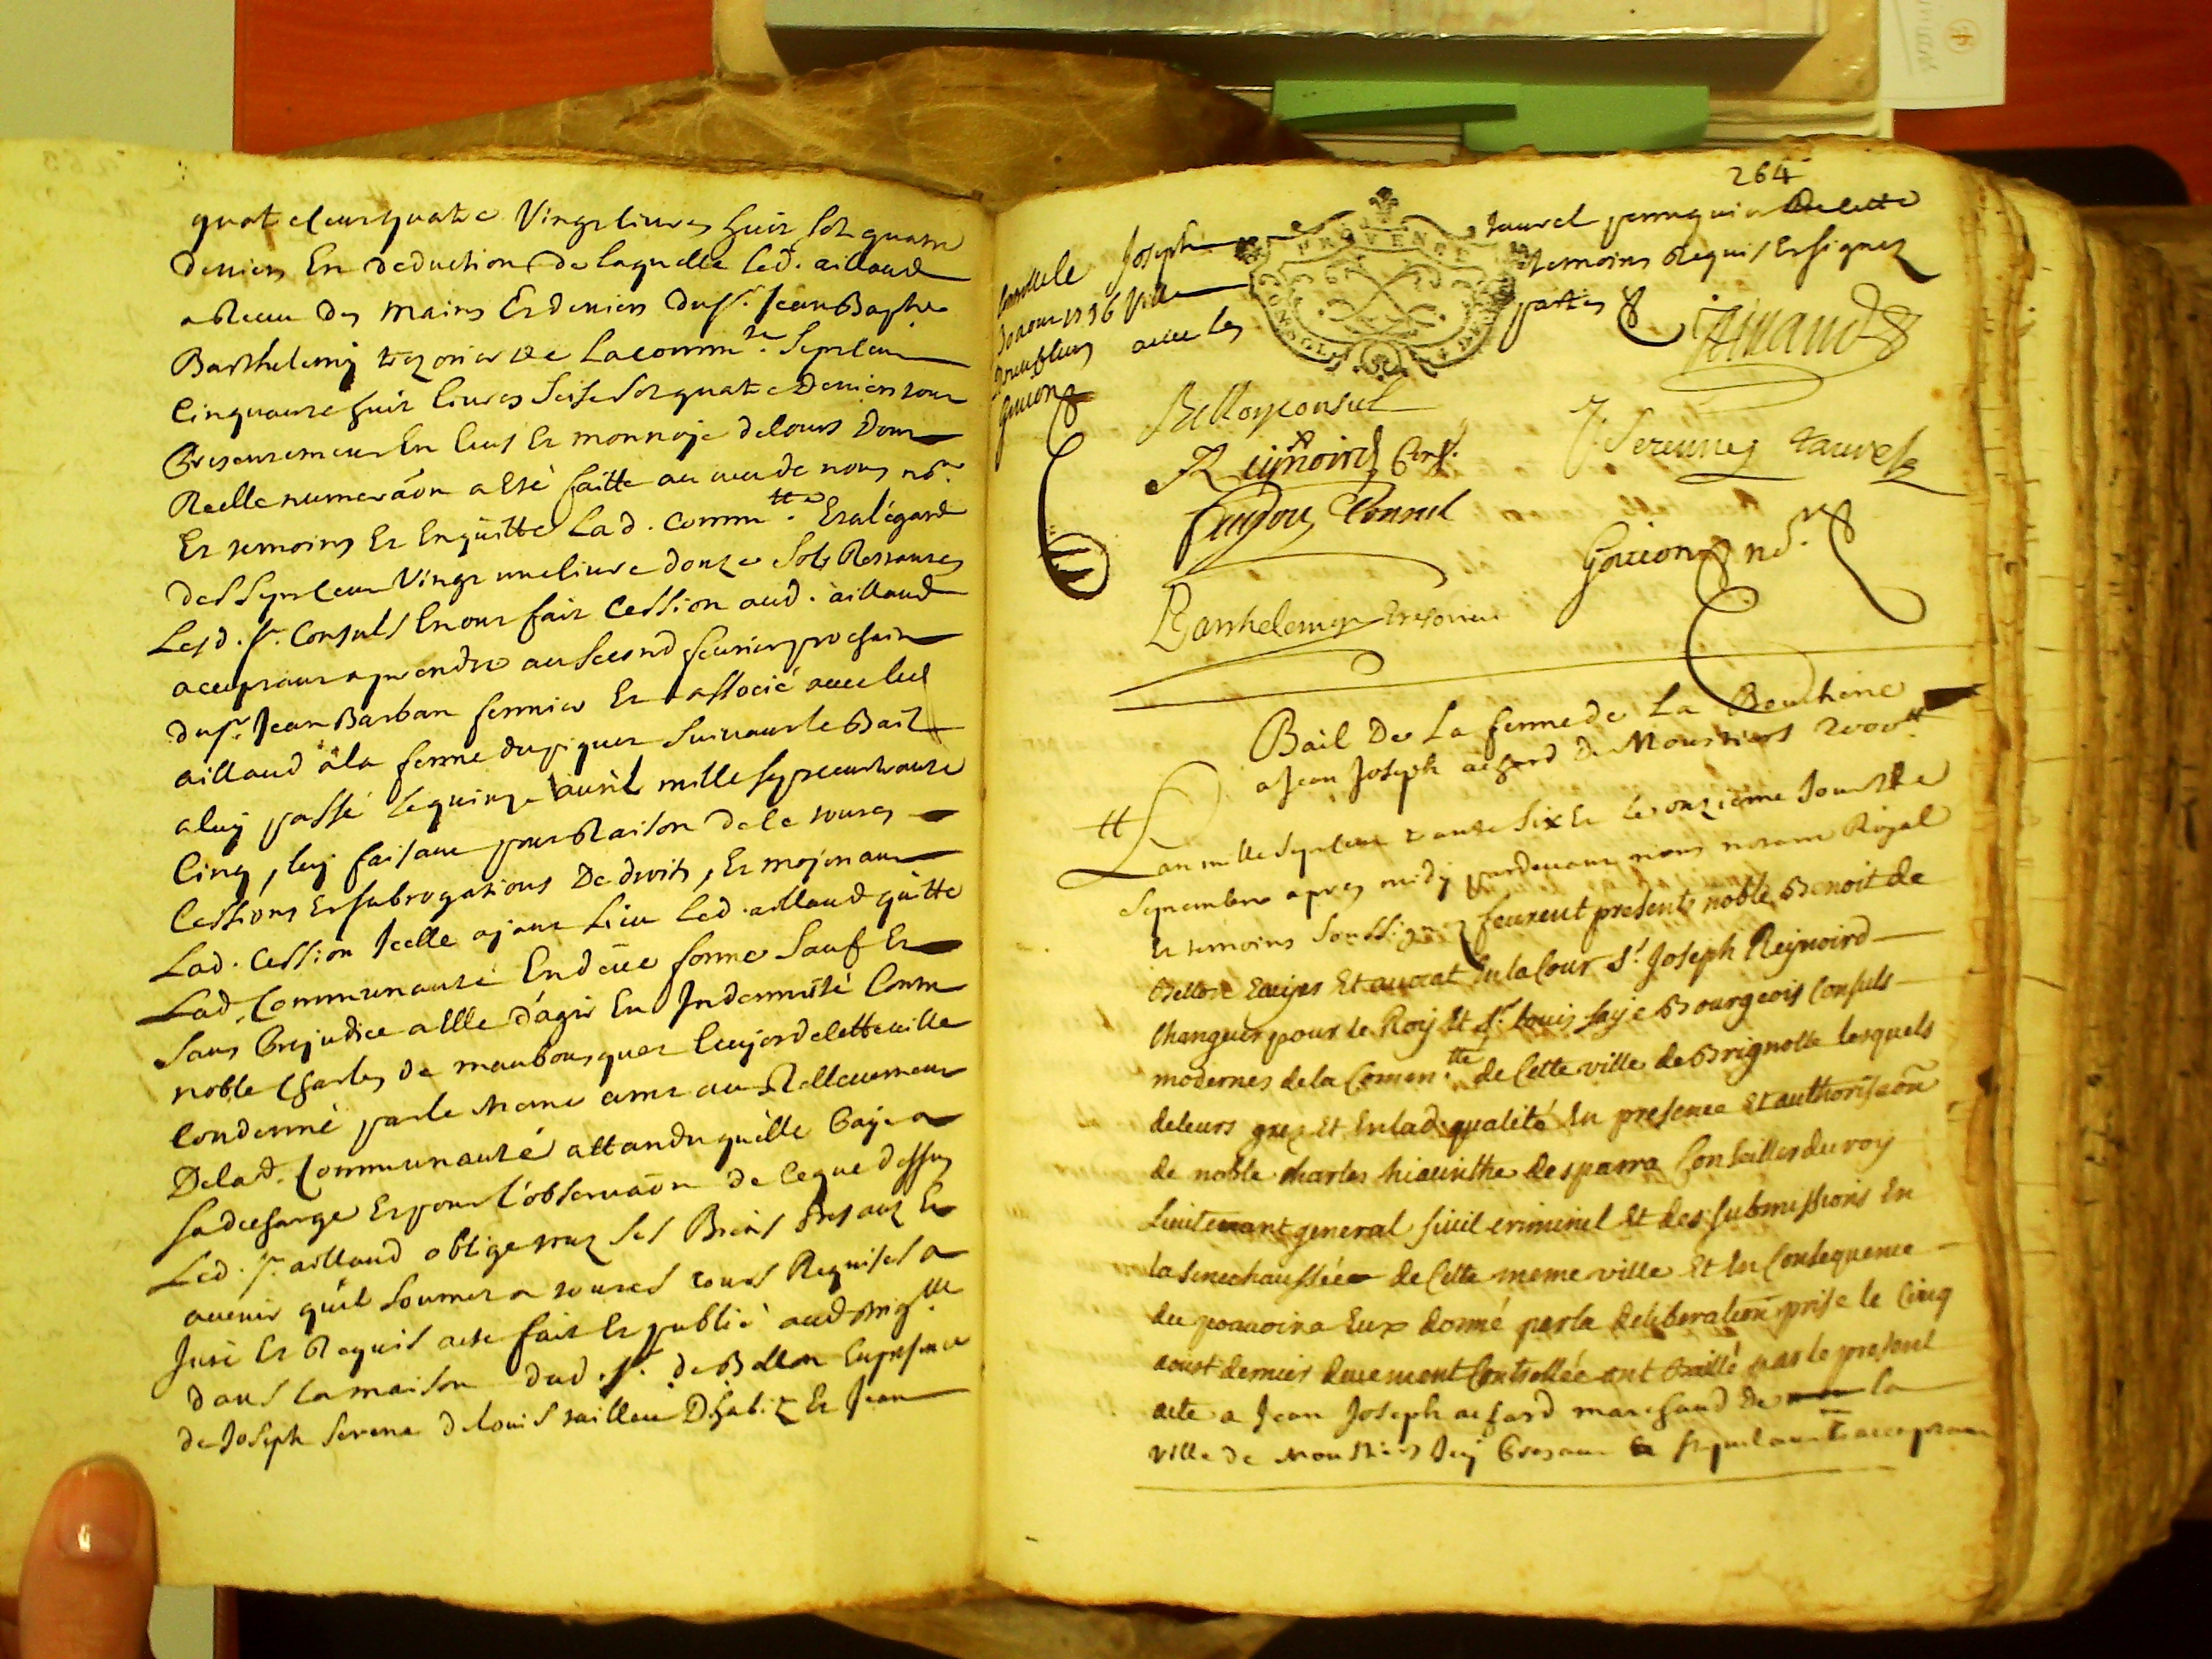 quatre cens quatre Vingt livres huit sols quatre
deniers En deduction de laquelle led. aillaud
a Receu des mains Et deniers du sr. Jean Baptiste
Barthelemy trezorier de La comm.te Sept cens
Cinquante huit livres seise sols quatre Deniers tout
Presentement En Ecus Et monnoye de cours Dont
Reelle numeraõn a Eté faitte au veu de nous nore.
Et temoins Et En quitte La d. Comm.tte Et a l'egard
des sept cens Vingt une livre douze sols Restantes
Les d. sr. Consuls En ont fait Cession aud. aillaud
acceptant a prendre au second fevrier prochain
du sr. Jean Barban fermier Et associé avec led
aillaud à la ferme du piquet suivant le Bail
a luy passé le quinze avril mille sept cent trante
Cinq, luy faisant pour Raison de ce toutes
Cessions Et subrogations De droits, Et moyenant
Lad. Cession Icelle ayant Lieu Led. aillaud quitte
Lad. Communauté En deüe forme Sauf Et
Sans Prejudice a Elle d'agir En Indemnité Contre
noble Charles de maubousquet Ecuyer de cette ville
Condamné par le meme arret au Rellevement
De lad. Communauté attandu qu'elle Paye a
sa decharge Et pour l'observaõn de Ce que dessus
Led. sr. aillaud oblige tous ses Biens Presants Et
avenir qu'il soumet a toutes cours Requises a
Juré Et Requis acte fait Et publié aud Brig.lle
dans la maison dud. sr. de Bellon En presence
de Joseph Serene de louis tailleur D'habits Et Jean
264
Joseph taurel perruquier de cette
Ville temoins Requis Et signez
avec les parties
Conttrollé le
30 aout 1736
Gouion
aillaud
Bellon consul
J. Serennes taurel
R eynoird Cons.l
frugou Consul
Gouion nore.
Barthelemy tresorier
PROVENCE
Bail De La ferme de La Boucherie
a Jean Joseph achard De Moustiers 2000tt.
L'an mille sept cent trante six Et le onzieme Jour de
Septembre apres midy pardevant nous notaire Royal
Et temoins soussignez feurent presents noble Benoit de
Bellon Ecuyer Et avocat En la Cour sr. Joseph Reynoird
Changeur pour le Roy Et sr. Louis faye Bourgeois Consuls
modernes de la Comm.tté de Cette ville de Brignolle lesquels
de leurs grez Et En lad. qualité En presence Et authorisaõn
de noble Charles hiacinthe desparra Conseiller du roy
Lieutenant general Civil Criminel Et des submissions En
la Senechaussée de Cette meme ville Et En Consequence
du pouvoir a Eux donné par la deliberation prise le Cinq
aoust dernier deuement Contrellée ont Baillé par le present
acte a Jean Joseph achard marchand De la
ville de Moustiers Icy Present Et stipulant Et acceptant